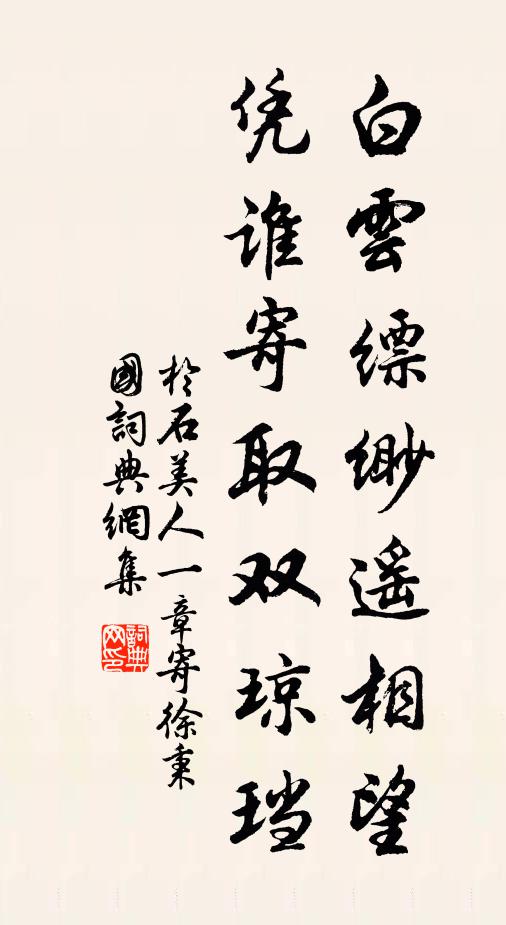 白雲缥缈遥相望
凭谁寄取双琼珰
於石美人一章寄徐秉
國詞典網集
詞典网印